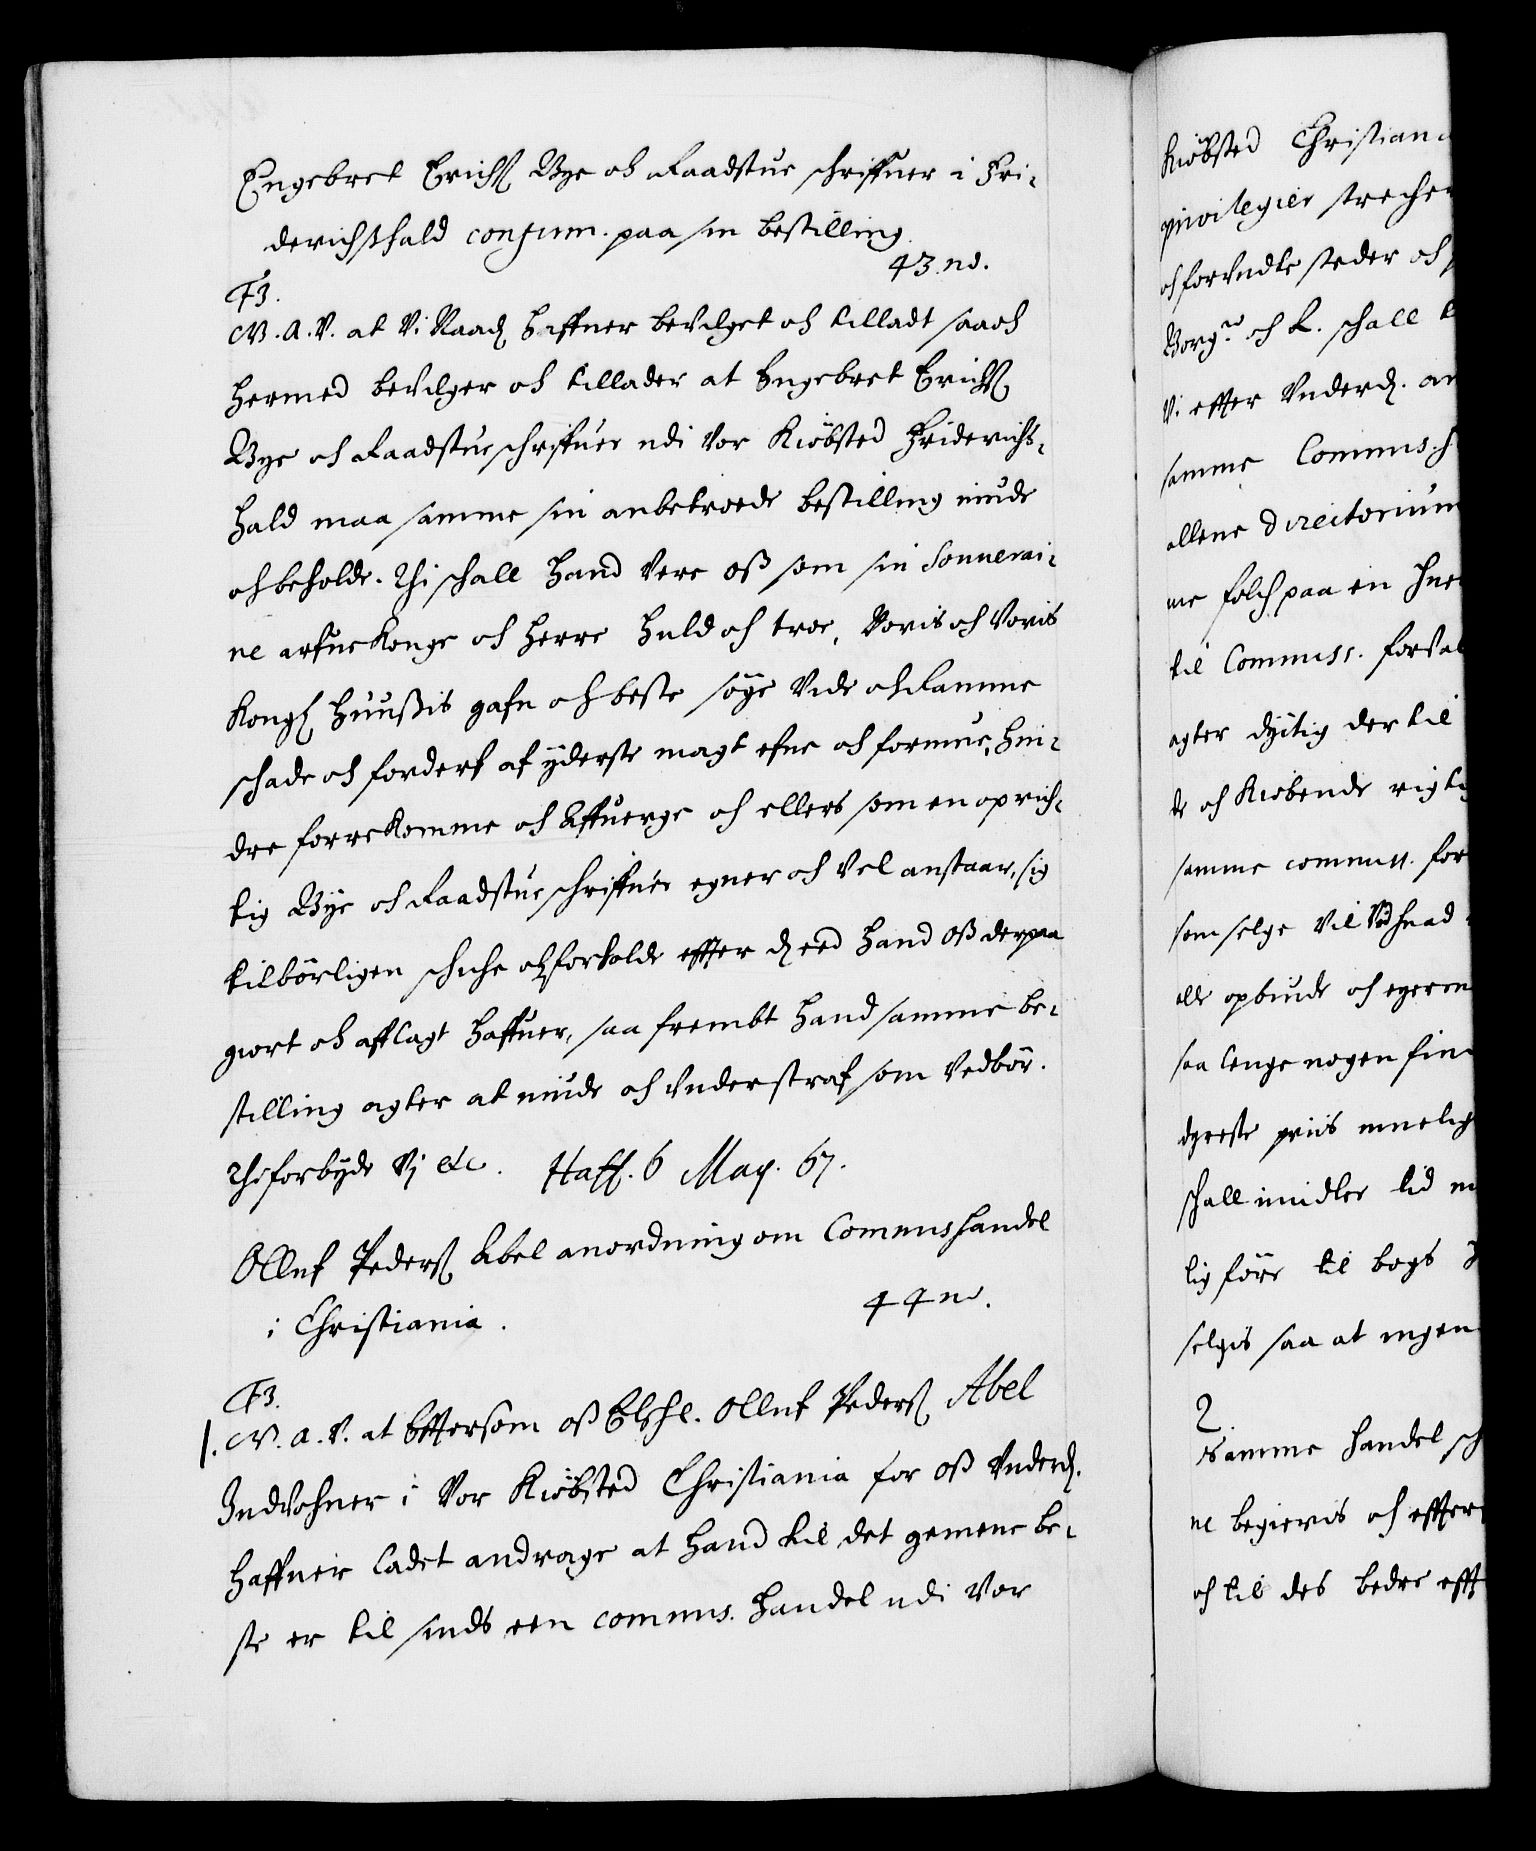 Engebret Erichs Bye och Raadstue schriffuer i Fri-
derichshald confirm. paa sin bestilling
43 no.
F3.
W. A. V. at Vi Naadl haffuer bevilget och tilladt saa och
hermed bevilger och tillader at Engebret Erichs
Bye och Raadstue schriffuer udi vor Kiöbsted Friderichs-
hald maa samme sin anbetroede bestilling niude
och beholde. Thi schall hand vere oß som sin Souverai-
ne arfue Konge och Herre huld och troe, Voris och Voris
Kongl Huußis gafn och beste söge vide och ramme
schade och forderf af yderste magt efne och formue, hin-
dre forrekomme och affuerge och ellers som en oprich-
tig Bye och Raadstue schriffuer egner och vel anstaar, sig
tilbörligen schiche och forholde effter d eed hand oß derpaa
giort och afflagt haffuer, saa frembt hand samme be-
stilling agter at niude och under straf som vedbör.
Thi forbyde Vj etc. Haff. 6 May. 67.
Olluf Peders Abel anordning om Commishandel
i Christiania.
44 no.
F3.
1. W. A. V. at Efftersom oß Elschl. Olluf Peders Abel
Indvohner i Vor Kiöbsted Christiania for oß Underd.
haffuer ladet andrage at hand til det gemene be-
ste er til sinds een commis. handel udi Vor
Kiöbsted Christian
privilegier streche
och forundte steder och
Borgr. och R. schall
Vi effter Underd. an
samme Commis. h
allene directorium
me folch paa en
til Commiss. forval
agter dyctig der til
de och Kiöbende rigtig
samme commiss. for
som selge vil
elle opbiude och
saa lenge nogen fin
dyreste priis
schall imidler tid
lig före til bogs
selgis saa at ingen
2
Samme handel sch
ne begieris och effter
och til des bedre efft